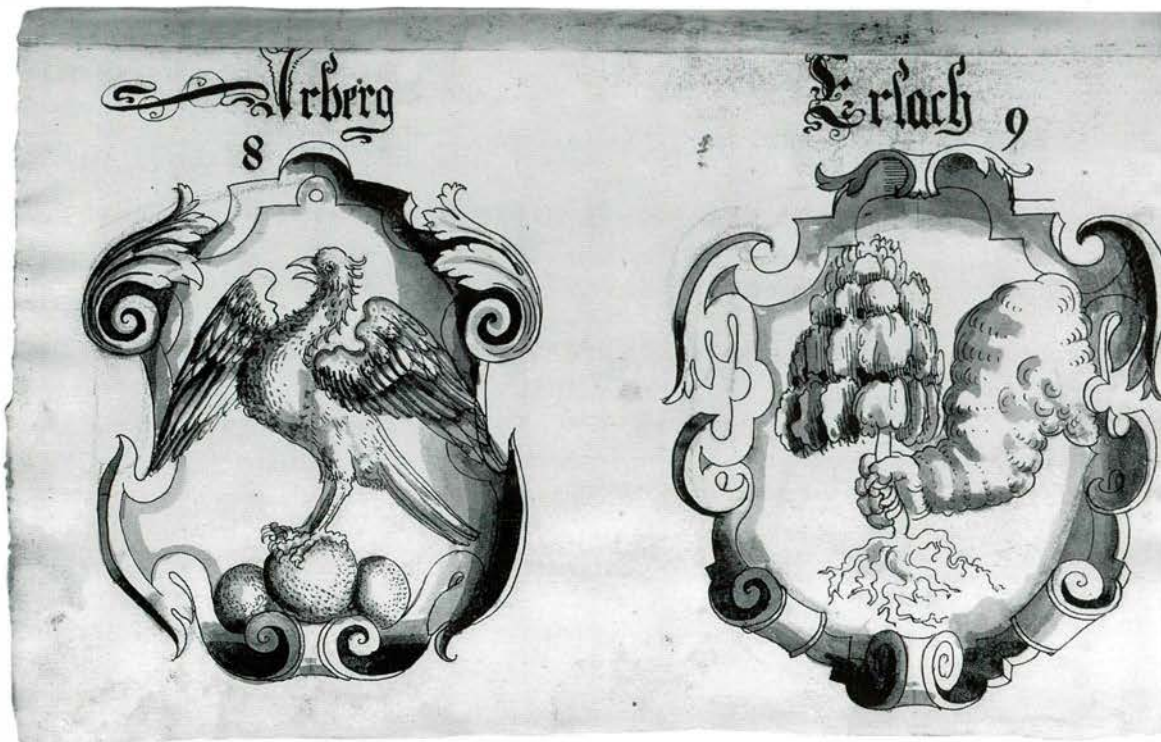 Arberg
8
Erlach 9